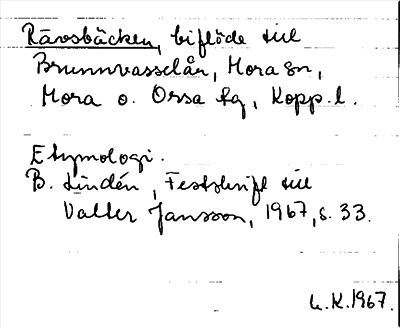 Rävosbäcken, biflöde till
Brunnvasselån, Mora sn,
Mora o. Orsa tg, Kopp. l.
Etymologi.
B. Lindén, Festskrift till
Valter Jansson, 1967, s. 33.
1967.